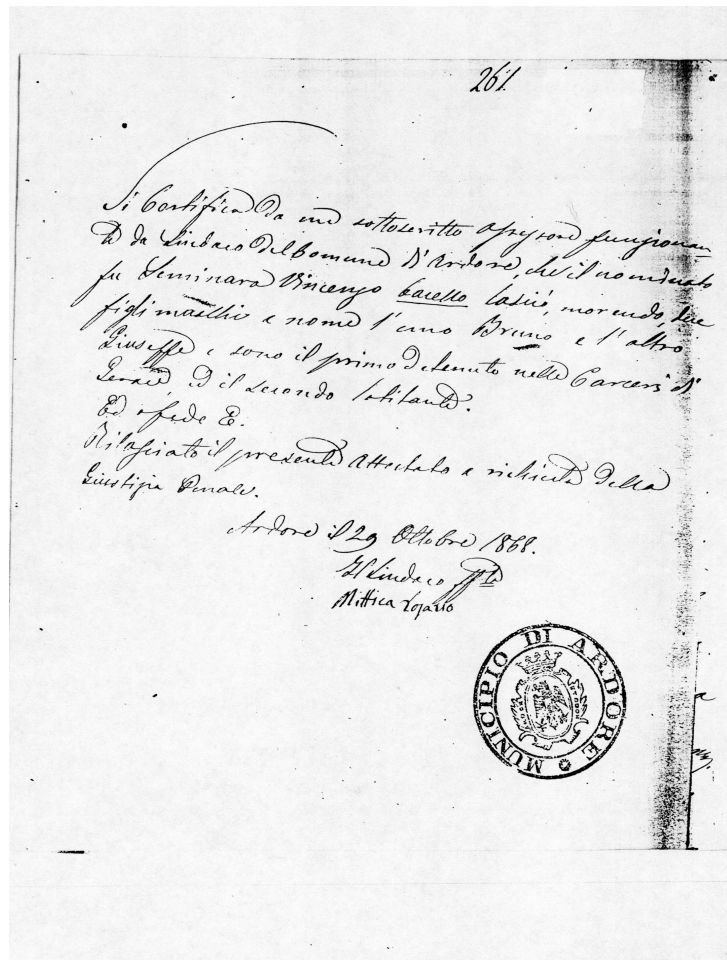 261
Si Certifica da me sottoscritto Assessore funzionan
te da Sindaco del Comune d'Ardore, che il nominato
fu Seminara Vincenzo lasciò, morendo, due
figli maschi a nome l'uno Bruno e l'altro
Giuseppe e sono il primo detenuto nelle Carceri di
Gerace, ed il secondo latitante.
Ed a fede E.
Rilasciato il presente attestato a richiesta della
Giustizia Penale.
Ardore il 29 Ottobre 1868.
Il Sindaco ff.te
Mittica Rosario
MUNICIPIO DI ARDORE